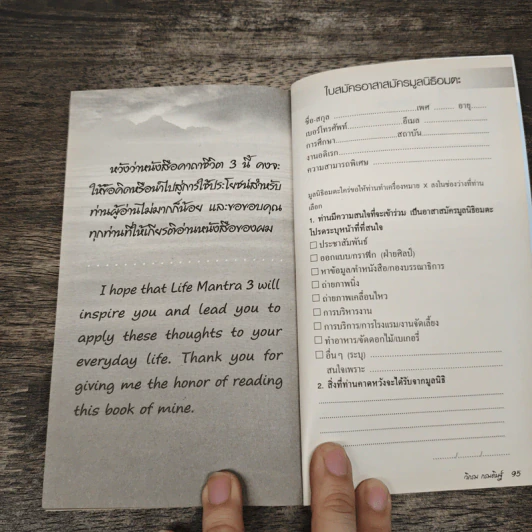 หวังว่าหนังสือคาถาชีวิต 3 นี้ คงจะ
ให้ข้อคิดหรือนำไปสู่การใช้ประโยชน์สำหรับ
ท่านผู้อ่านไม่มากก็น้อย และขอขอบคุณ
ทุกท่านที่ให้เกียรติอ่านหนังสือของผม
I hope that Life Mantra 3 will
inspire you and lead you to
apply these thoughts to your
everyday life. Thank you for
giving me the honor of reading
this book of mine.
ใบสมัครอาสาสมัครมูลนิธิอมตะ
ชื่อ-สกุล ..............................เพศ .......... อายุ......
เบอร์โทรศัพท์....................อีเมล ....................
การศึกษา..............................สถาบัน....................
งานอดิเรก..................................................
ความสามารถพิเศษ ........................................
มูลนิธิอมตะใคร่ขอให้ท่านทำเครื่องหมาย X ลงในช่องว่างที่ท่าน
เลือก
1. ท่านมีความสนใจที่จะเข้าร่วม เป็นอาสาสมัครมูลนิธิอมตะ
โปรดระบุหน้าที่ที่สนใจ
☐ ประชาสัมพันธ์
☐ ออกแบบกราฟิก (ฝ่ายศิลป์)
☐ หาข้อมูล/ทำหนังสือ/กองบรรณาธิการ
☐ ถ่ายภาพนิ่ง
☐ ถ่ายภาพเคลื่อนไหว
☐ การบริหารงาน
☐ การบริการ/การโรงแรม/งานจัดเลี้ยง
☐ ทำอาหาร/จัดดอกไม้/เบเกอรี่
☐ อื่น ๆ (ระบุ) ........................................
สนใจเพราะ ........................................
2. สิ่งที่ท่านคาดหวังจะได้รับจากมูลนิธิ
........../........../..........
วิกรม กรมดิษฐ์ 95